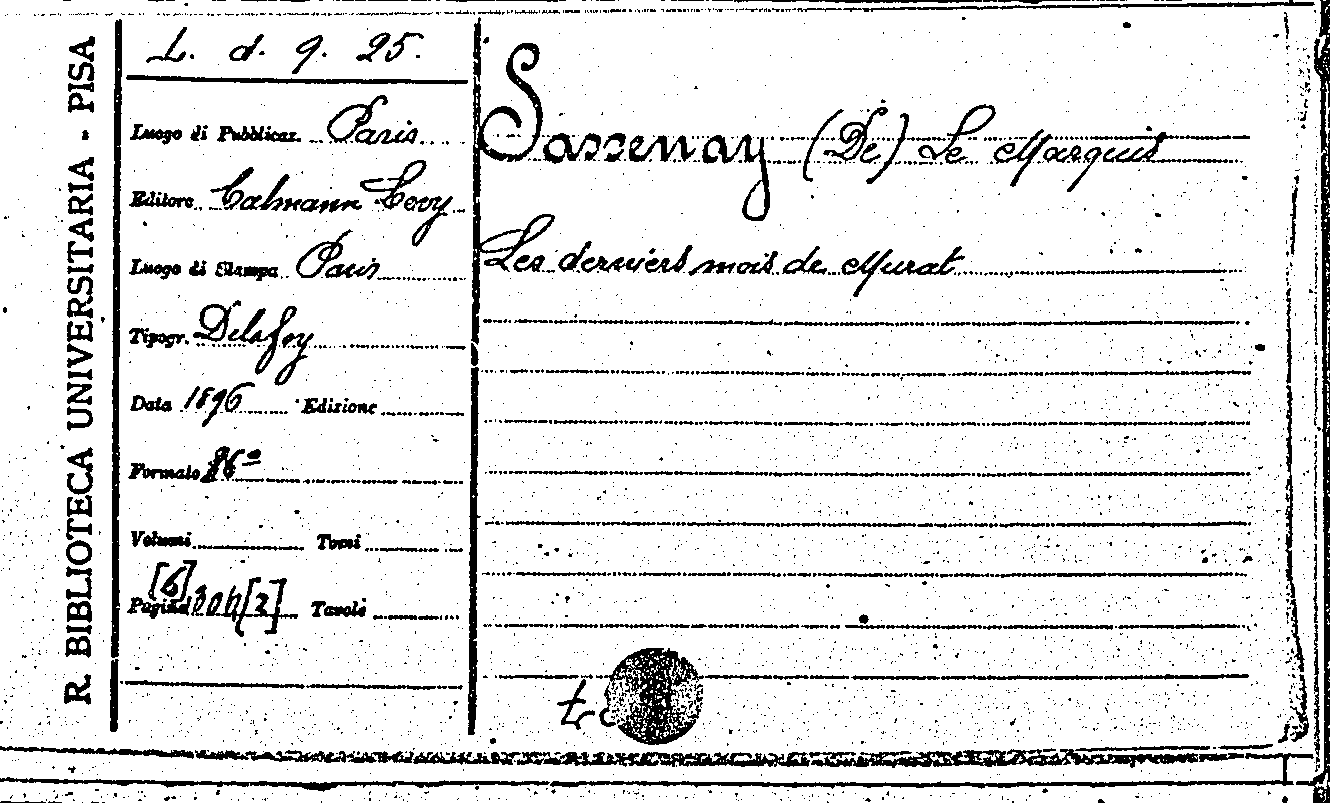 R. BIBLIOTECA UNIVERSITARIA - PISA
L. d. q. 25.
Luogo di Pubblicaz. Paris
Editore Calmann Levy
Luogo di Stampa Paris
Tipogr. Delafoy
Data 1896 Edizione
Formato 16º
Volumi Tomi
[6]
Pagine 304 [2] Tavole
Sassenay (De) Le Marquis
Les derniers mois de Murat